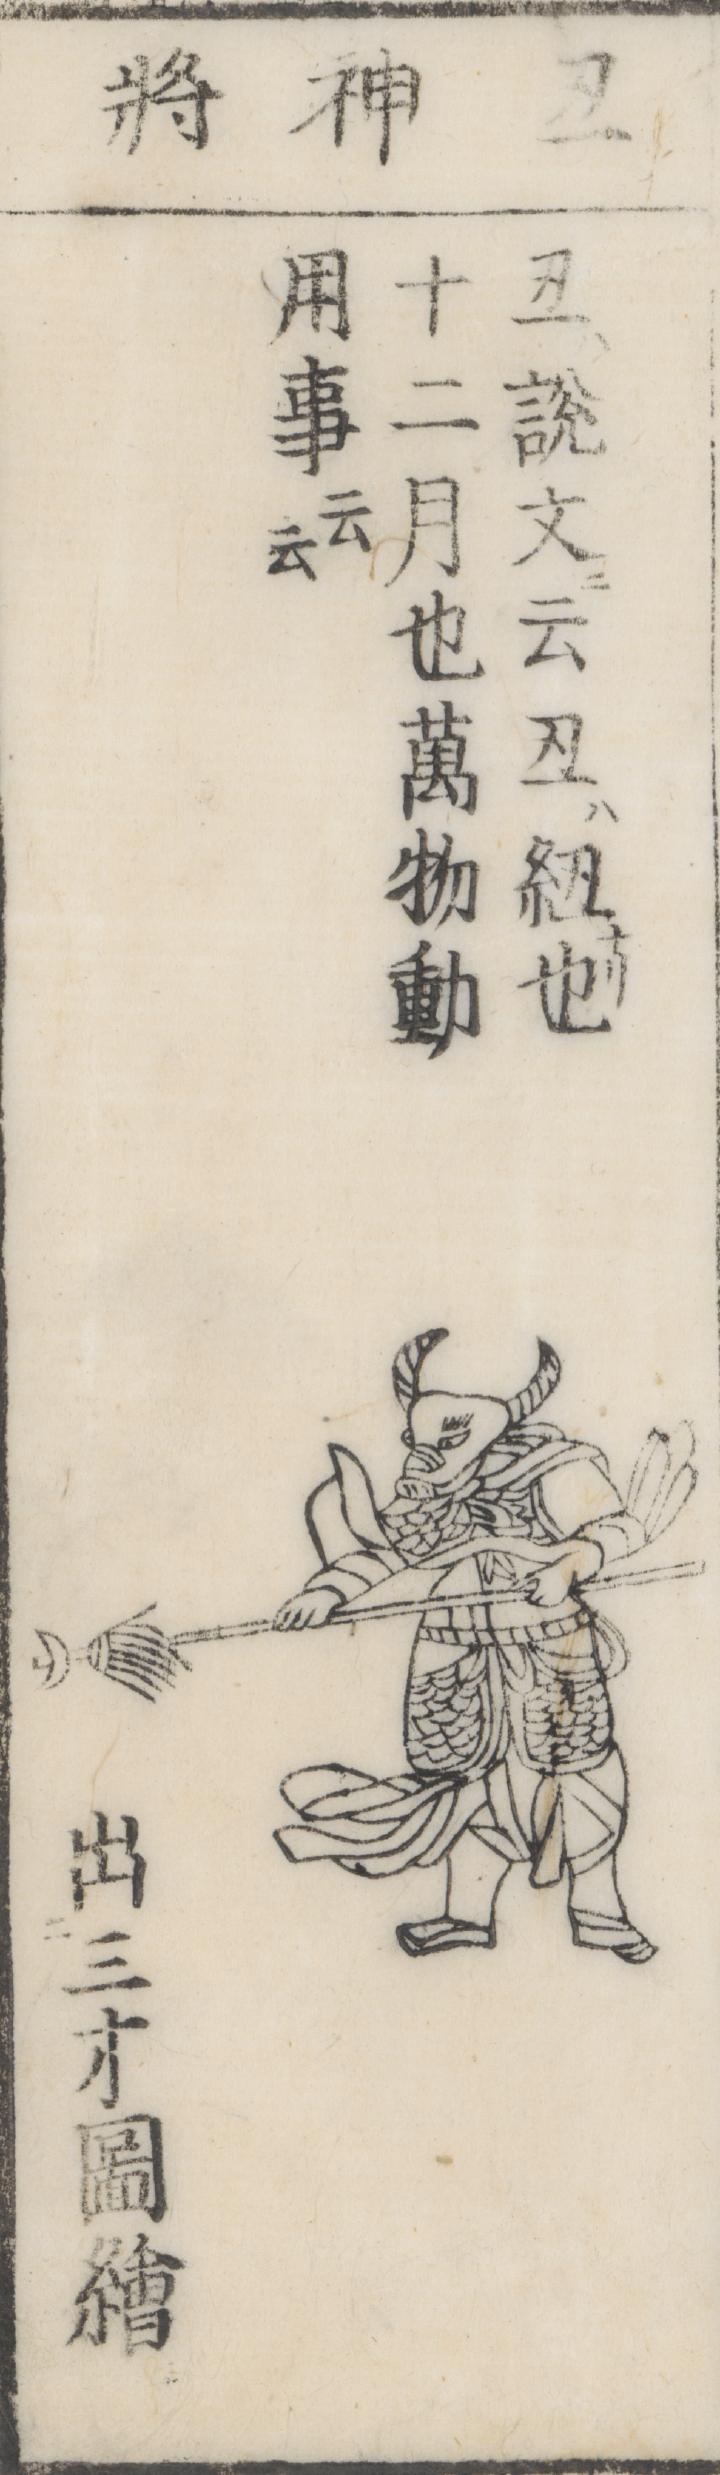 丑神將
丑ハ説文ニ云丑ハ紐也
十二月也萬物動
用事云云
出三才圖繪